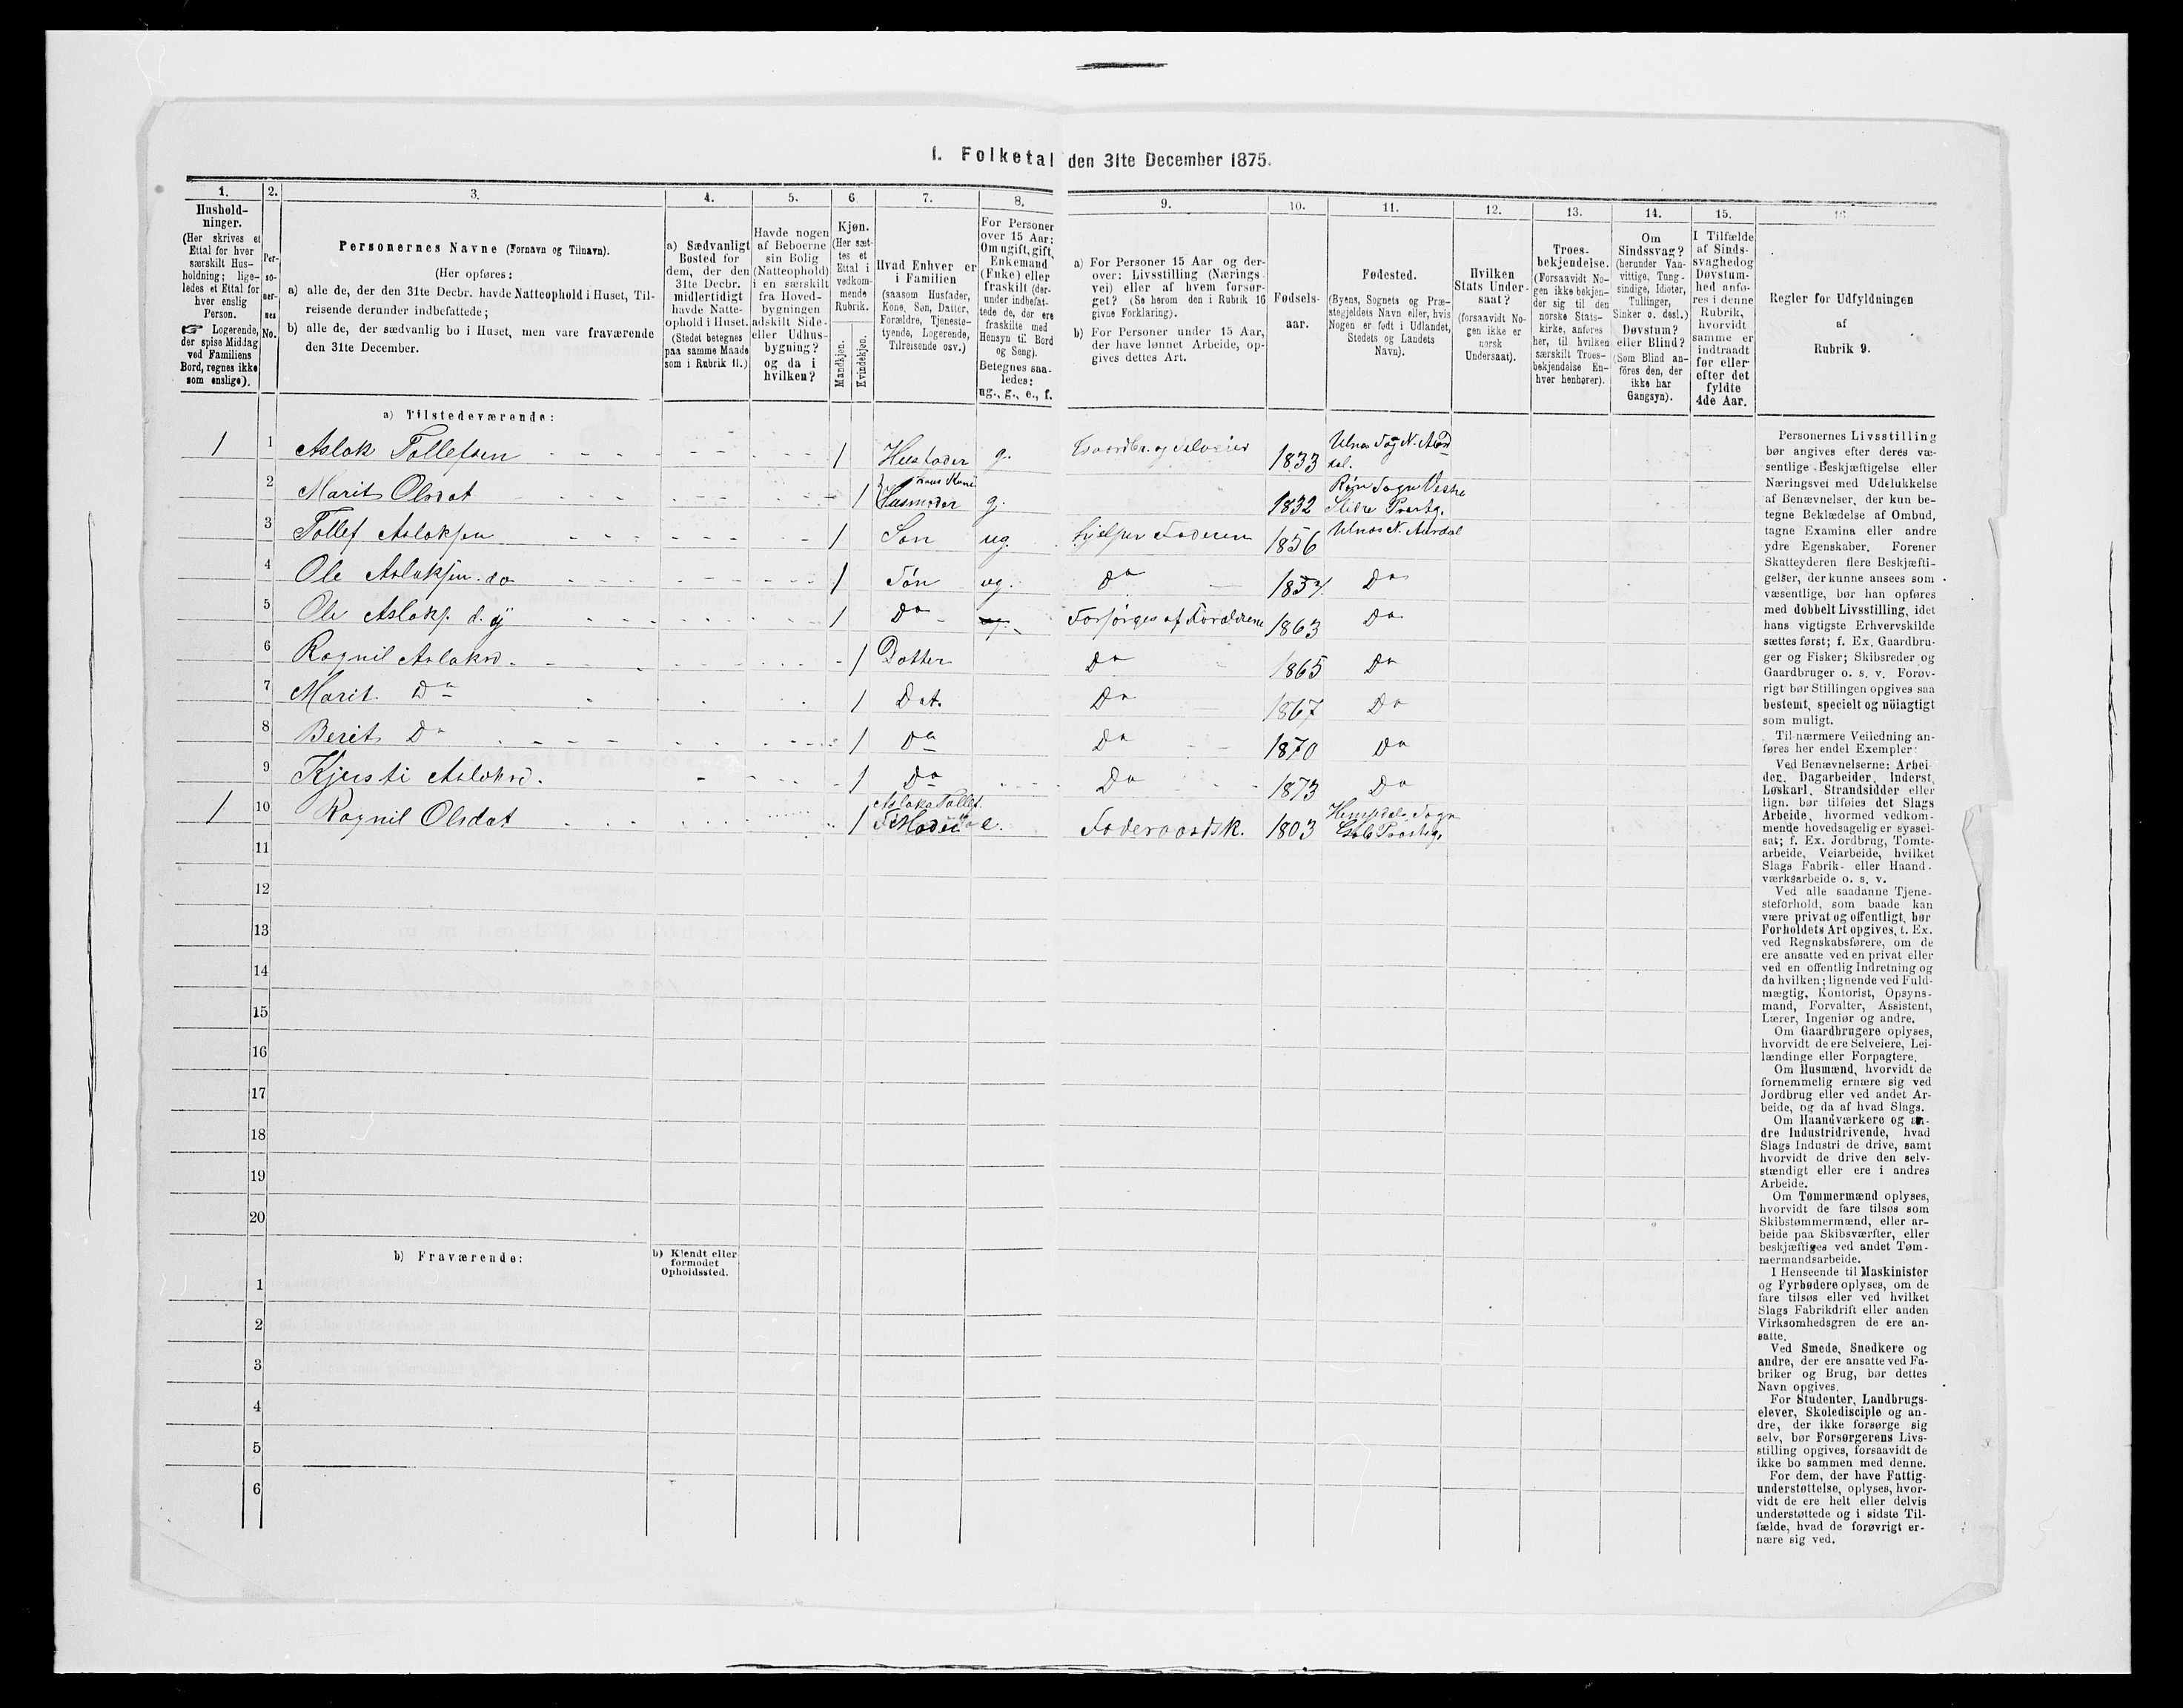 I. Folketal den 31te December 1875.
1.
Hushold-
ninger.
(Her skrives et
Ettal for hver
særskilt Hus-
holdning; lige-
ledes et Ettal for
hver enslig
Person.
☞ Logerende,
der spise Middag
ved Familiens
Bord, regnes ikke
som enslige).
2.
Per-
so-
ner-
nes
No.
3.
Personernes Navne (Fornavn og Tilnavn).
(Her opføres:
a) alle de, der den 31te Decbr. havde Natteophold i Huset, Til-
reisende derunder indbefattede;
b) alle de, der sædvanlig bo i Huset, men vare fraværende
den 31te December.
4.
a) Sædvanligt
Bosted for
dem, der den
31te Decbr.
midlertidigt
havde Natte-
ophold i Huset.
(Stedet betegnes
paa samme Maade
som i Rubrik 11.)
5.
Havde nogen
af Beboerne
sin Bolig
(Natteophold)
i en særskilt
fra Hoved-
bygningen
adskilt Side-
eller Udhus-
bygning?
og da i
hvilken?
6.
Kjøn.
(Her sæt-
tes et
Ettal i
vedkom-
mende
Rubrik.
Mandkjøn.
Kvindekjøn.
7.
Hvad Enhver er
i Familien
(saasom Husfader,
Kone, Søn, Datter,
Forældre, Tjeneste-
tyende, Logerende,
Tilreisende osv.)
8.
For Personer
over 15 Aar:
Om ugift, gift,
Enkemand
(Enke) eller
fraskilt (der-
under indbefat-
tede de, der ere
fraskilte med
Hensyn til Bord
og Seng).
Betegnes saa-
ledes:
ug., g., e., f.
9.
a) For Personer 15 Aar og der-
over: Livsstilling (Nærings-
vei) eller af hvem forsør-
get? (Se herom den i Rubrik 16
givne Forklaring).
b) For Personer under 15 Aar,
der have lønnet Arbeide, op-
gives dettes Art.
10.
Fødsels-
aar.
11.
Fødested.
(Byens, Sognets og Præ-
stegjeldets Navn eller, hvis
Nogen er født i Udlandet,
Stedets og Landets
Navn).
12.
Hvilken
Stats Under-
saat?
(forsaavidt No-
gen ikke er
norsk
Undersaat).
13.
Troes-
bekjendelse.
(Forsaavidt No-
gen ikke bekjen-
der sig til den
norske Stats-
kirke, anføres
her, til hvilken
særskilt Troes-
bekjendelse En-
hver henhører).
14.
Om
Sindssvag?
(herunder Van-
vittige, Tung-
sindige, Idioter,
Tullinger,
Sinker o. desl.)
Døvstum?
eller Blind?
(Som Blind an-
føres den, der
ikke har
Gangsyn).
15.
I Tilfælde
af Sinds-
svaghed og
Døvstum-
hed anfø-
res i denne
Rubrik,
hvorvidt
samme er
indtraadt
før eller
efter det
fyldte
4de Aar.
16
Regler for Udfyldningen
af
Rubrik 9.
a) Tilstedeværende:
1 1 Aslak Tollefsen 1 Husfader g. Gaardbr. og Selveier 1833 Ulnæs Sog N. Aur
dal.
2 Marit Olsdat 1 hans Kone Husmoder g. 1832 Røn Sogn Vestre
Slidre Præstg.
3 Tollef Aslaksen 1 Søn ug. hjelper Faderen 1856 Ulnæs N. Aurdal
4 Ole Aslaksen. do 1 Søn ug. Do 1857. Do
5 Ole Aslaks. d. y 1 Do ug. Forsørges af Forældrene 1863 Do
6 Ragnil Aslaksd. 1 Datter Do 1865 Do
7 Marit Do 1 Dat. Do 1867 Do
8 Berit Do 1 Do Do 1870 Do
9 Kjersti Aslaksd. 1 Do Do 1873 Do
1 10 Ragnil Olsdat 1 Aslak Tollef. Moder e. Føderaadsk. 1803 Hemsdals Sogn
Præstg.
11
12
13
14
15
16
17
18
19
20
b) Fraværende:
b) Kjendt eller
formodet
Opholdssted.
1
2
3
4
5
6
Personernes Livsstilling
bør angives efter deres væ-
sentlige Beskjæftigelse eller
Næringsvei med Udelukkelse
af Benævnelser, der kun be-
tegne Beklædelse af Ombud,
tagne Examina eller andre
ydre Egenskaber. Forener
Skatteyderen flere Beskjæfti-
gelser, der kunne ansees som
væsentlige, bør han opføres
med dobbelt Livsstilling, idet
hans vigtigste Erhvervskilde
sættes først; f. Ex. Gaardbru-
ger og Fisker; Skibsreder og
Gaardbruger o. s. v. Forøv-
rigt bør Stillingen opgives saa
bestemt, specielt og nöiagtigt
som muligt.
Til nærmere Veiledning an-
føres her endel Exempler:
Ved Benævnelserne: Arbei-
der, Dagarbeider, Inderst,
Løskarl, Strandsidder eller
lign. bør tilføies det Slags
Arbeide, hvormed vedkom-
mende hovedsagelig er syssel-
sat; f. Ex. Jordbrug, Tomte-
arbeide, Veiarbeide, hvilket
Slags Fabrik- eller Haand-
værksarbeide o. s. v.
Ved alle saadanne Tjene-
steforhold, som baade kan
være privat og offentligt, bør
Forholdets Art opgives, t. Ex.
ved Regnskabsførere, om de
ere ansatte ved en privat eller
ved en offentlig Indretning og
da hvilken; lignende ved Fuld-
mægtig, Kontorist, Opsyns-
mand, Forvalter, Assistent,
Lærer, Ingeniør og andre.
Om Gaardbrugere oplyses,
hvorvidt de ere Selveiere, Lei-
lændinge eller Forpagtere.
Om Husmænd, hvorvidt de
fornemmelig ernære sig ved
Jordbrug eller ved andet Ar-
beide, og da af hvad Slags.
Om Haandværkere og an-
dre Industridrivende, hvad
Slags Industri de drive, samt
hvorvidt de drive den selv-
stændigt eller ere i andres
Arbeide.
Om Tømmermænd oplyses,
hvorvidt de fare tilsøs som
Skibstømmermænd, eller ar-
beide paa Skibsværfter, eller
beskjæftiges ved andet Tøm-
mermandsarbeide.
I Henseende til Maskinister
og Fyrbødere oplyses, om de
fare tilsøs eller ved hvilket
Slags Fabrikdrift eller anden
Virksomhedsgren de ere an-
satte.
Ved Smede, Snedkere og
andre, der ere ansatte ved Fa-
briker og Brug, bør dettes
Navn opgives.
For Studenter, Landbrugs-
elever, Skoledisciple og an-
dre, der ikke forsørge sig
selv, bør Forsørgerens Livs-
stilling opgives, forsaavidt de
ikke bo sammen med denne.
For dem, der have Fattig-
understøttelse, oplyses, hvor-
vidt de ere helt eller delvis
understøttede og i sidste Til-
fælde, hvad de forøvrigt er-
nære sig ved.